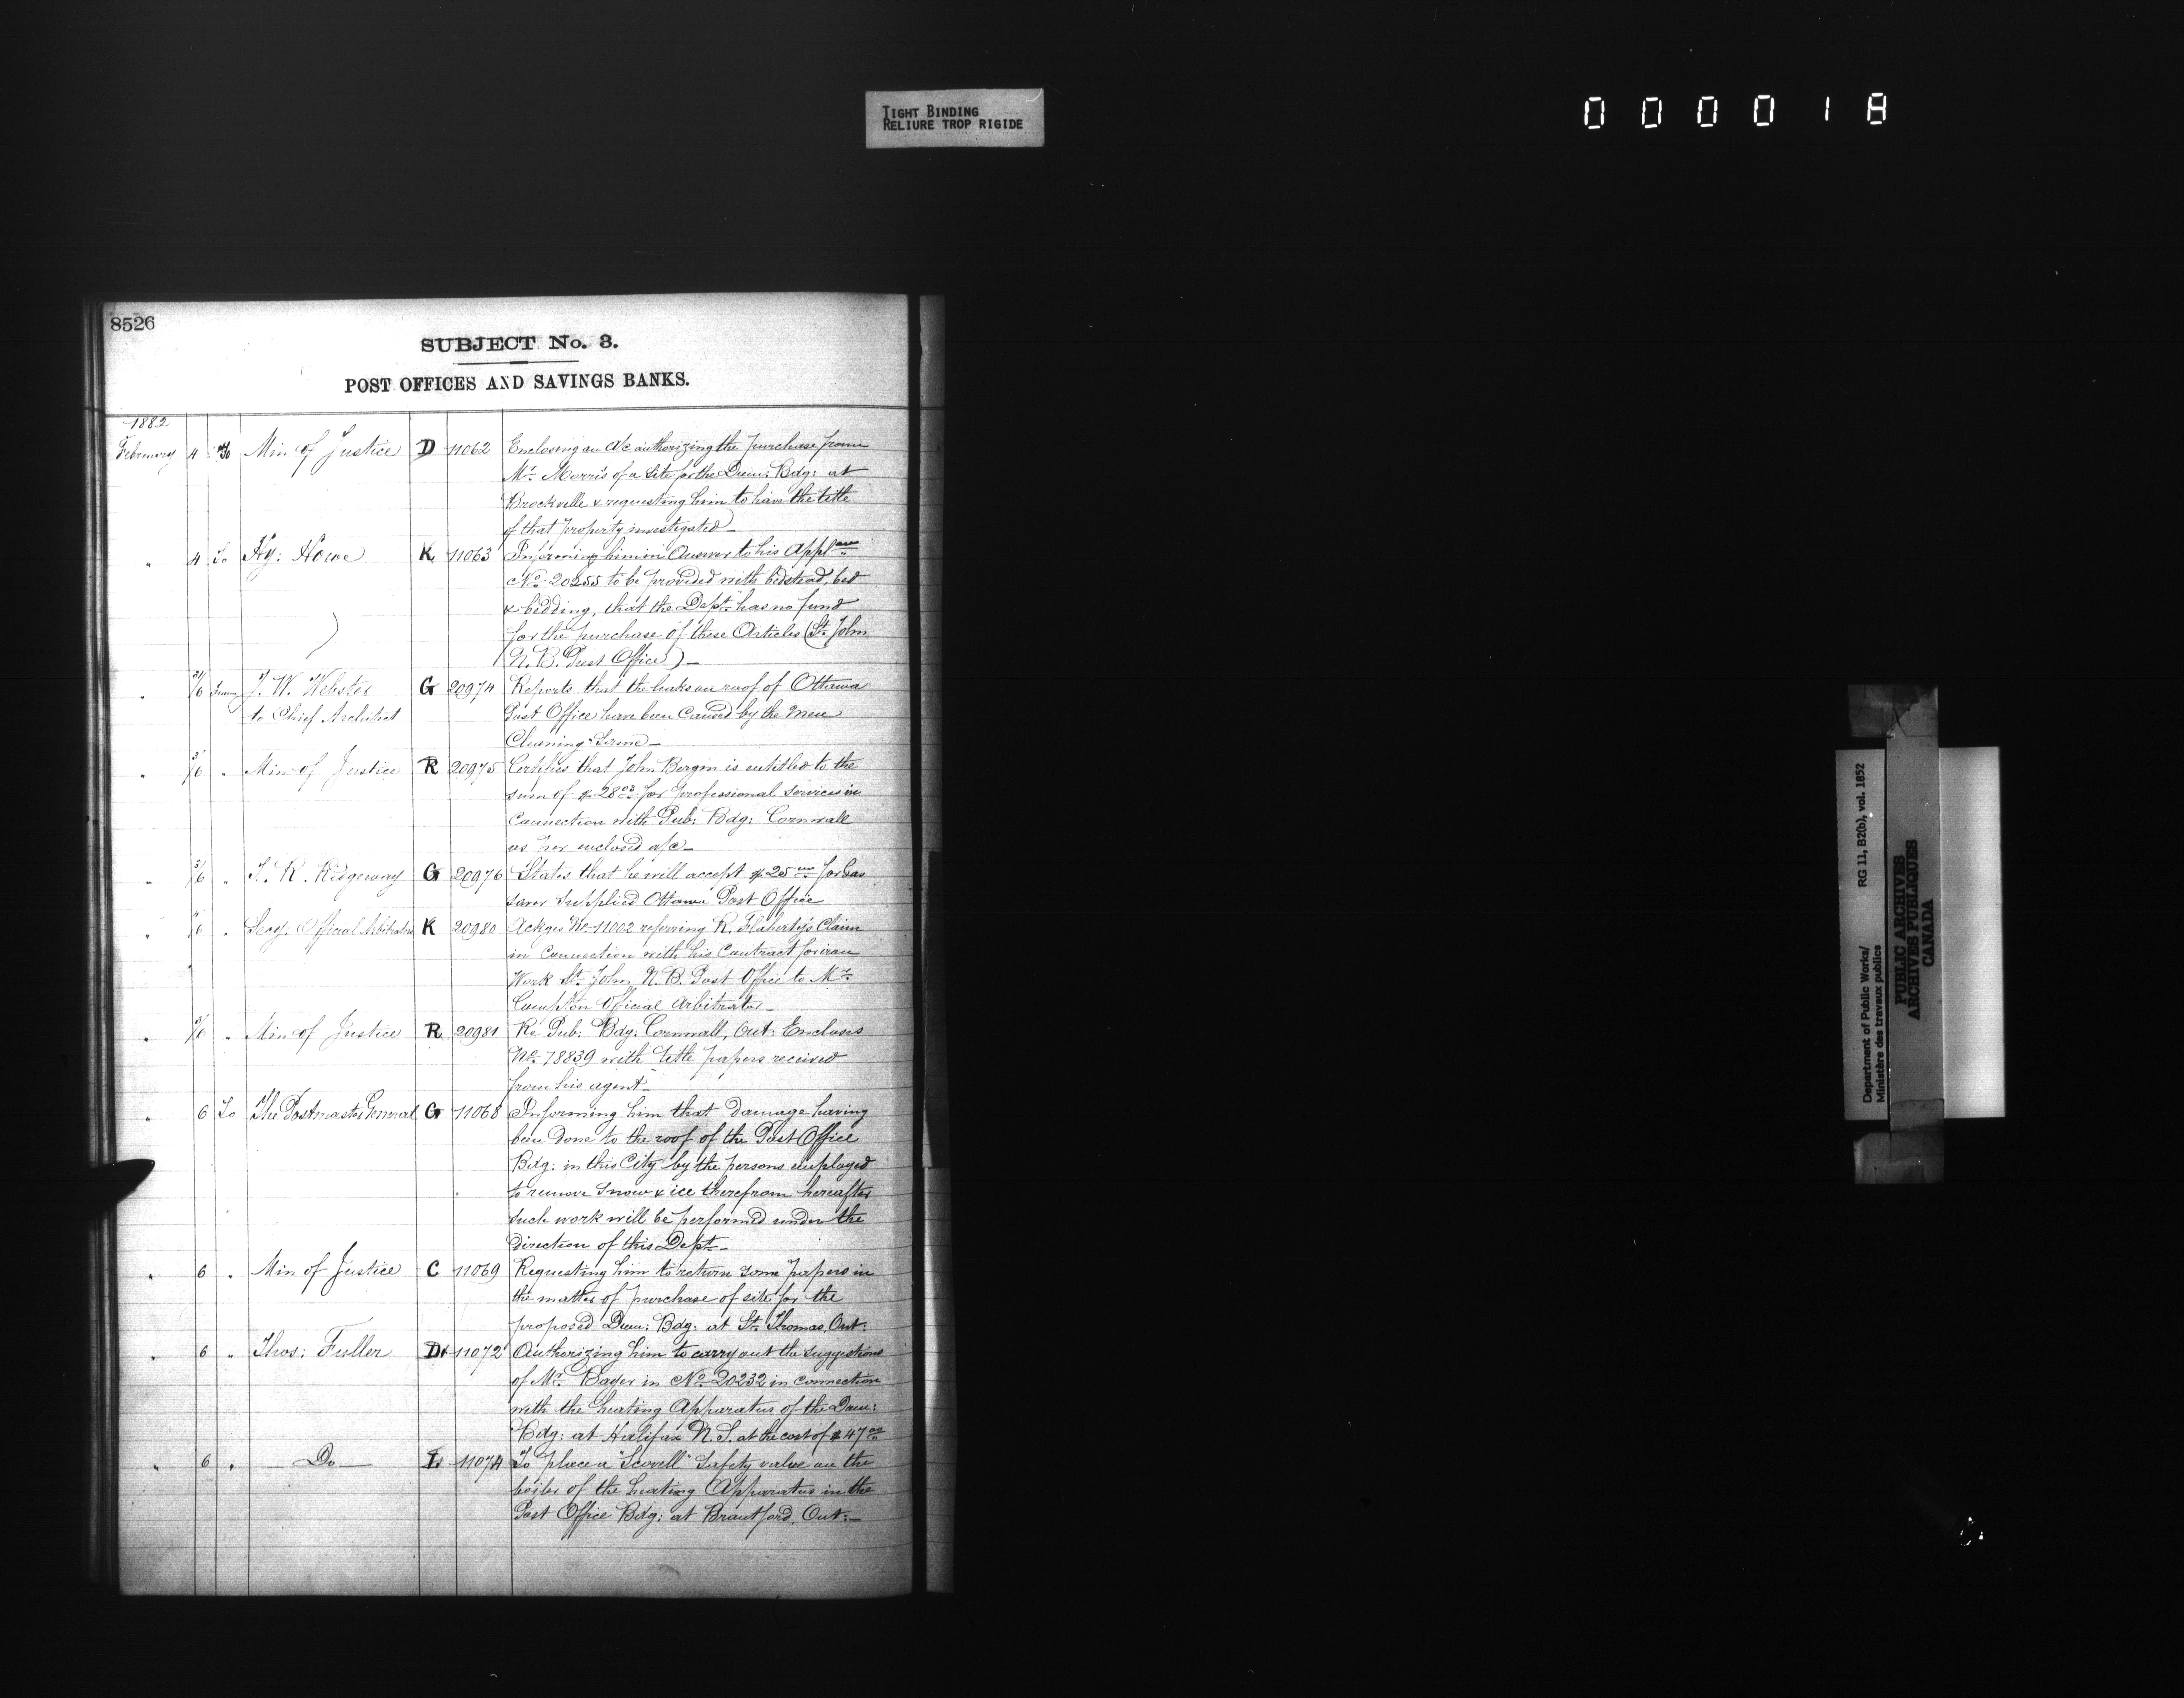 TIGHT BINDING
RELIURE TROP RIGIDE
000018
8526
SUBJECT No. 3.
POST OFFICES AND SAVINGS BANKS.
1882
February 4 To Min of Justice D 11062 Enclosing an O/c authorizing the purchase from
Mr. Morris of a site for the Dom: Bdg: at
Brockville & requesting him to have the title
of that property investigated—
" 4 To Hy: Howe K 11063 Informing him in Answer to his Applon
No. 20255 to be provided with bedstead, bed
& bedding, that the Dept. has no fund
for the purchase of these Articles (St. John
N.B. Post Office)—
" 6 From J. W. Webster G 20974 Reports that the leaks on roof of Ottawa
to Chief Architect Post Office have been caused by the men
Cleaning same—
" 3/6 " Min of Justice R 20975 Certifies that John Bergin is entitled to the
sum of $28.00 for professional services in
Connection with Pub: Bdg: Cornwall
as per enclosed a/c—
" 3/6 " F. R. Ridgeway G 20976 States that he will accept $25.00 for
supplied Ottawa Post Office
" 6 " Secy: Official Arbitrators K 20980 Ackges No. 11002 referring R. Flaherty's Claim
in Connection with his Contract for iron
Work St. John, N.B. Post Office to Mr.
Compton Official Arbitrator—
" 3/6 " Min of Justice R 20981 Re Pub: Bdg: Cornwall, Ont: Encloses
No. 18839 with title papers received
from his agent—
" 6 To The Postmaster General G 11068 Informing him that damage having
been done to the roof of the Post Office
Bdg: in this City by the persons employed
to remove snow & ice therefrom hereafter
such work will be performed under the
direction of this Dept.—
" 6 " Min of Justice C 11069 Requesting him to return some papers in
the matter of purchase of site for the
proposed Dom: Bdg: at St. Thomas, Ont:
" 6 " Thos: Fuller D 11072 Authorizing him to carry out the suggestions
of Mr. Eager in No. 20232 in connection
with the heating Apparatus of the Dom:
Bdg: at Halifax N.S. at the cost of $47.00
" 6 " —Do— 11074 To place a "Scovell" safety valve on the
boiler of the heating Apparatus in the
Post Office Bdg: at Brantford, Ont:—
Department of Public Works/ RG 11, B2(b), vol. 1852
Ministère des travaux publics
PUBLIC ARCHIVES
ARCHIVES PUBLIQUES
CANADA